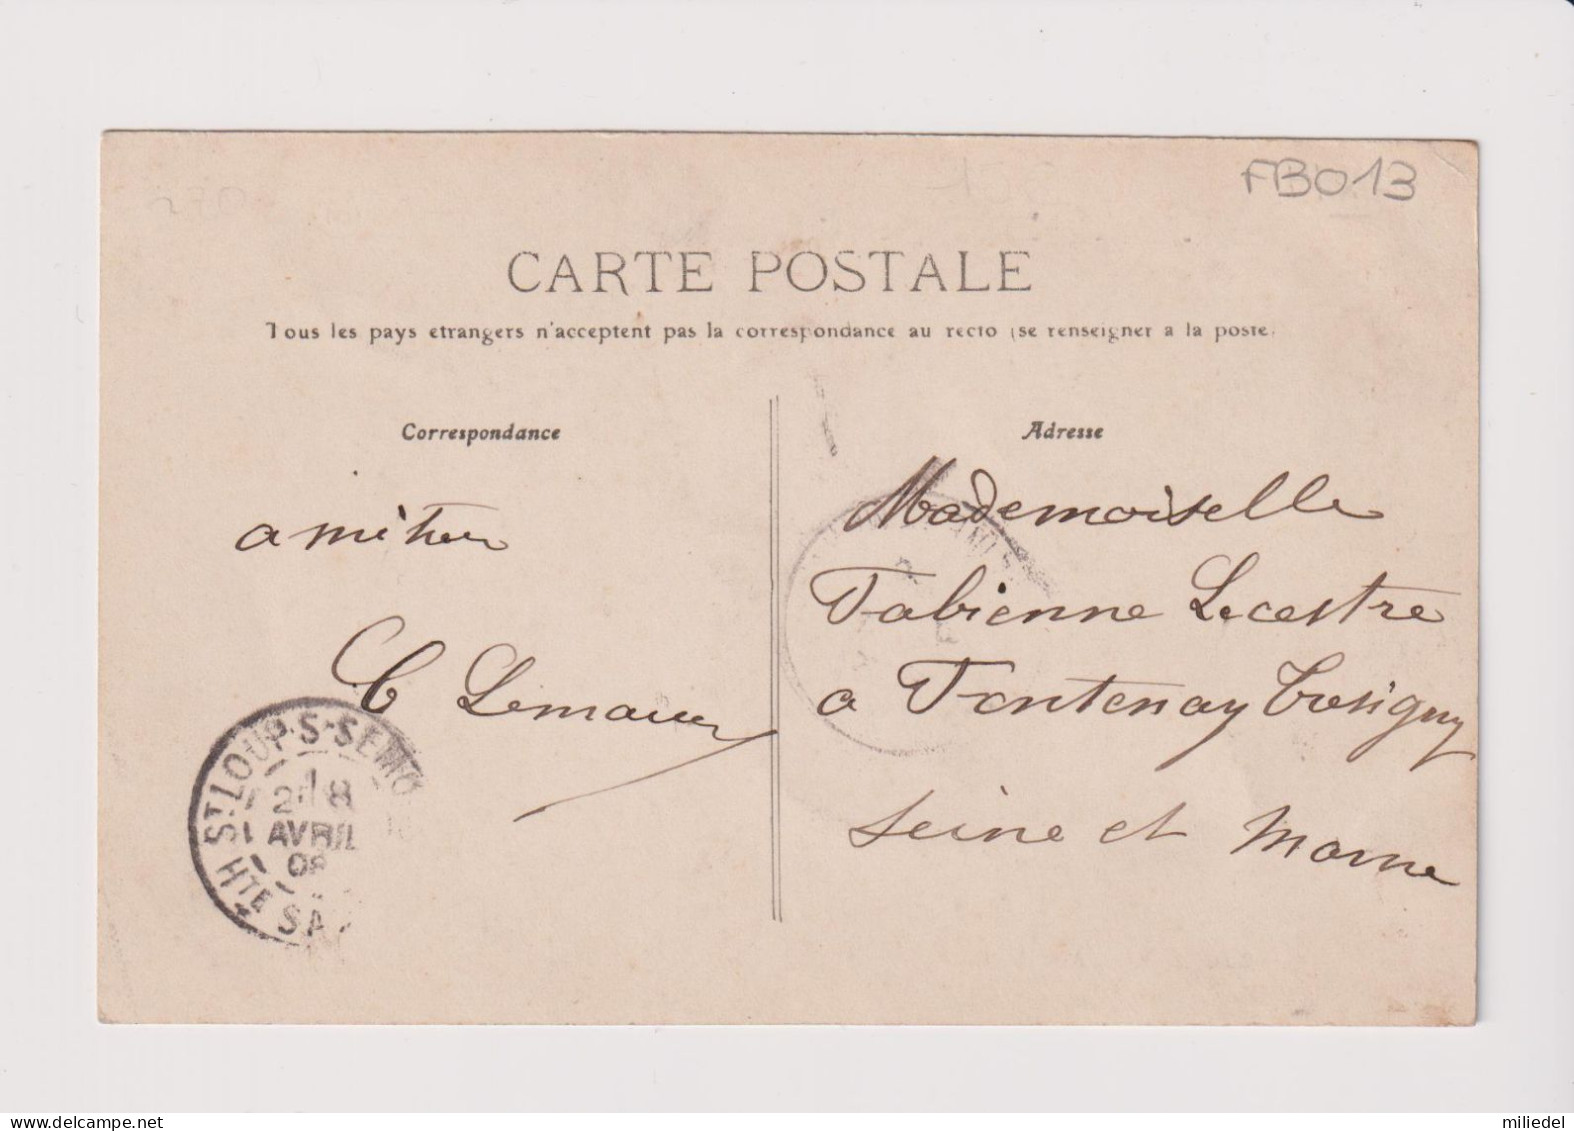 FB013
CARTE POSTALE
Tous les pays etrangers n'acceptent pas la correspondance au recto (se renseigner a la poste)
Correspondance
amities
C Lemaire
ST LOUP-S-SEMO
AVRIL
08
HTE SA
Adresse
Mademoiselle
Fabienne Lecestre
a Fontenay Tresigny
Seine et Marne
miliedel